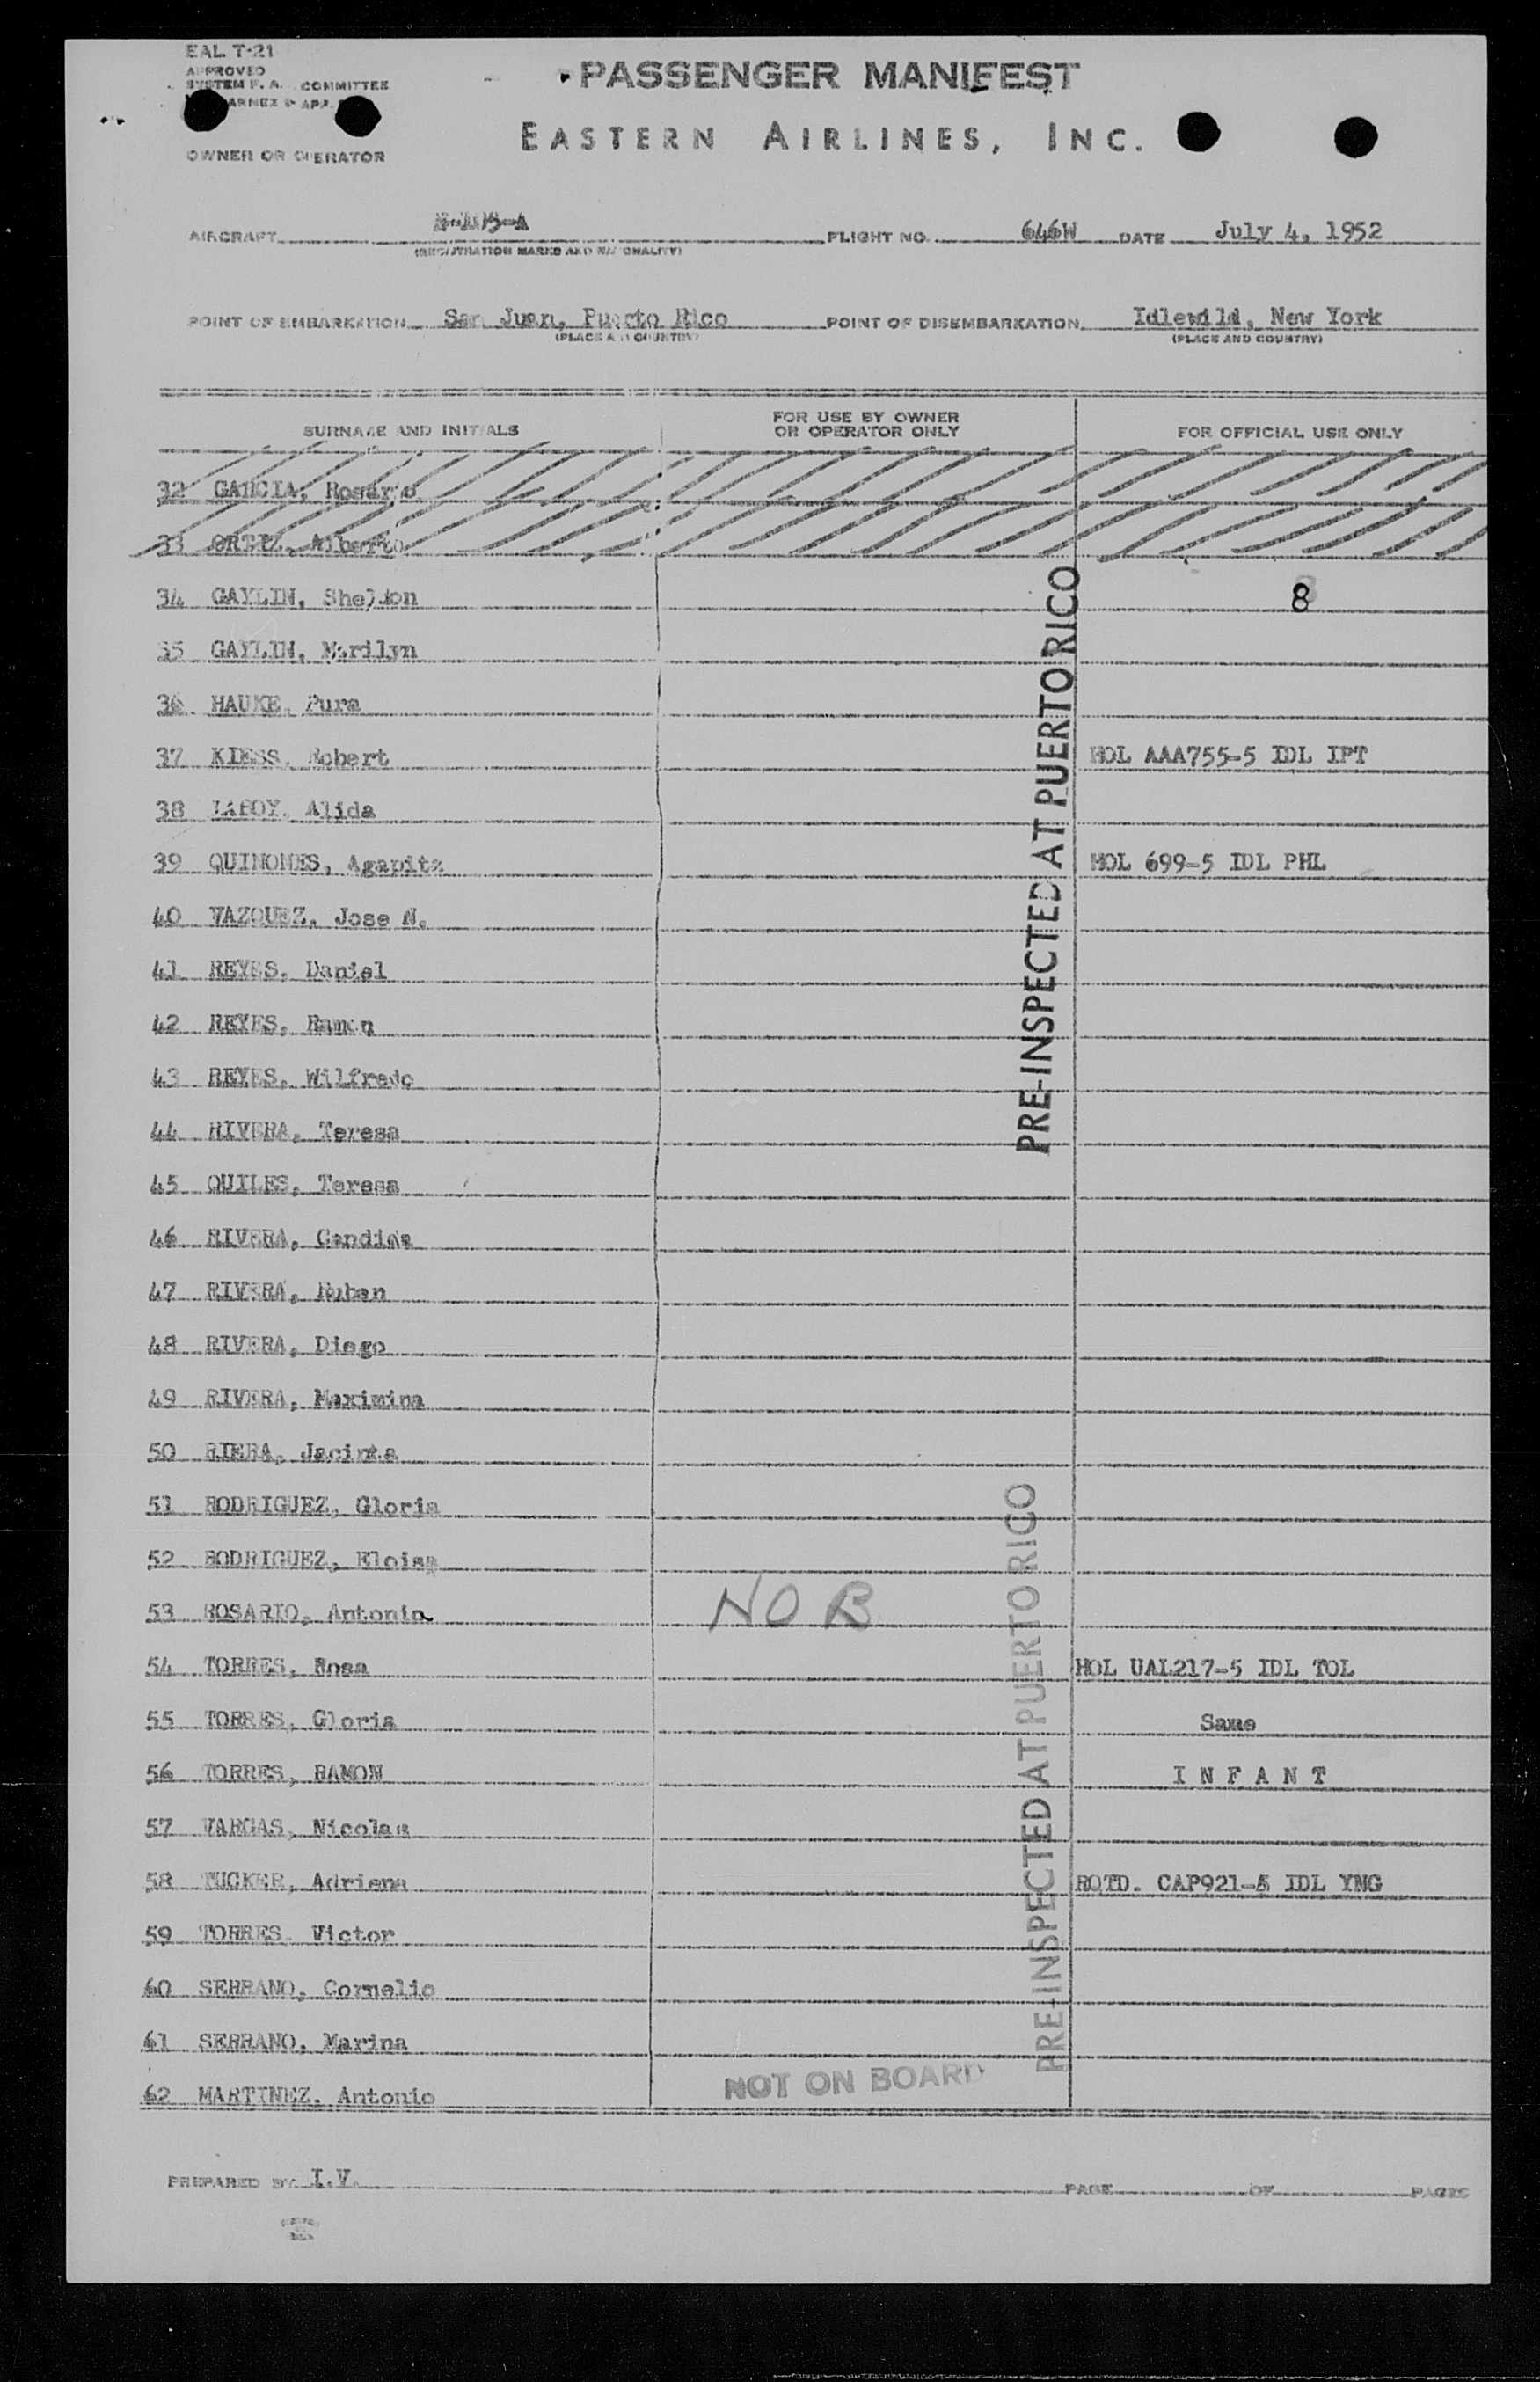 EAL T-21
APPROVED
SYSTEM F. A. COMMITTEE
ANNEX
OWNER OR OPERATOR
PASSENGER MANIFEST
EASTERN AIRLINES, INC.
AIRCRAFT
(REGISTRATION MARKS AND NATIONALITY)
FLIGHT NO. 646W DATE July 4, 1952
POINT OF EMBARKATION San Juan, Puerto Rico
(PLACE AND COUNTRY)
POINT OF DISEMBARKATION Idlewild, New York
(PLACE AND COUNTRY)
SURNAME AND INITIALS
FOR USE BY OWNER
OR OPERATOR ONLY
FOR OFFICIAL USE ONLY
32 GARCIA, Rosario
33 ORTIZ, Alberto
34 GAYLIN, Sheldon 8
35 GAYLIN, Marilyn
36 HAUKE, Pura
37 KIESS, Robert HOL AAA755-5 IDL IPT
38 LABOY, Alida
39 QUINONES, Agapita HOL 699-5 IDL PHL
40 VAZQUEZ, Jose N.
41 REYES, Daniel
42 REYES, Ramon
43 REYES, Wilfredo
44 RIVERA, Teresa
45 QUILES, Teresa
46 RIVERA, Candida
47 RIVERA, Ruben
48 RIVERA, Diego
49 RIVERA, Maximina
50 RIERA, Jacinta
51 RODRIGUEZ, Gloria
52 RODRIGUEZ, Eloisa
53 ROSARIO, Antonia NO B
54 TORRES, Rosa HOL UAL217-5 IDL TOL
55 TORRES, Gloria Same
56 TORRES, RAMON I N F A N T
57 VARGAS, Nicolas
58 TUCKER, Adriana RQTD. CAP921-5 IDL YNG
59 TORRES, Victor
60 SERRANO, Cornelio
61 SERRANO, Marina
62 MARTINEZ, Antonio NOT ON BOARD
PRE-INSPECTED AT PUERTO RICO
PRE-INSPECTED AT PUERTO RICO
PREPARED BY I.V.
PAGE OF PAGES